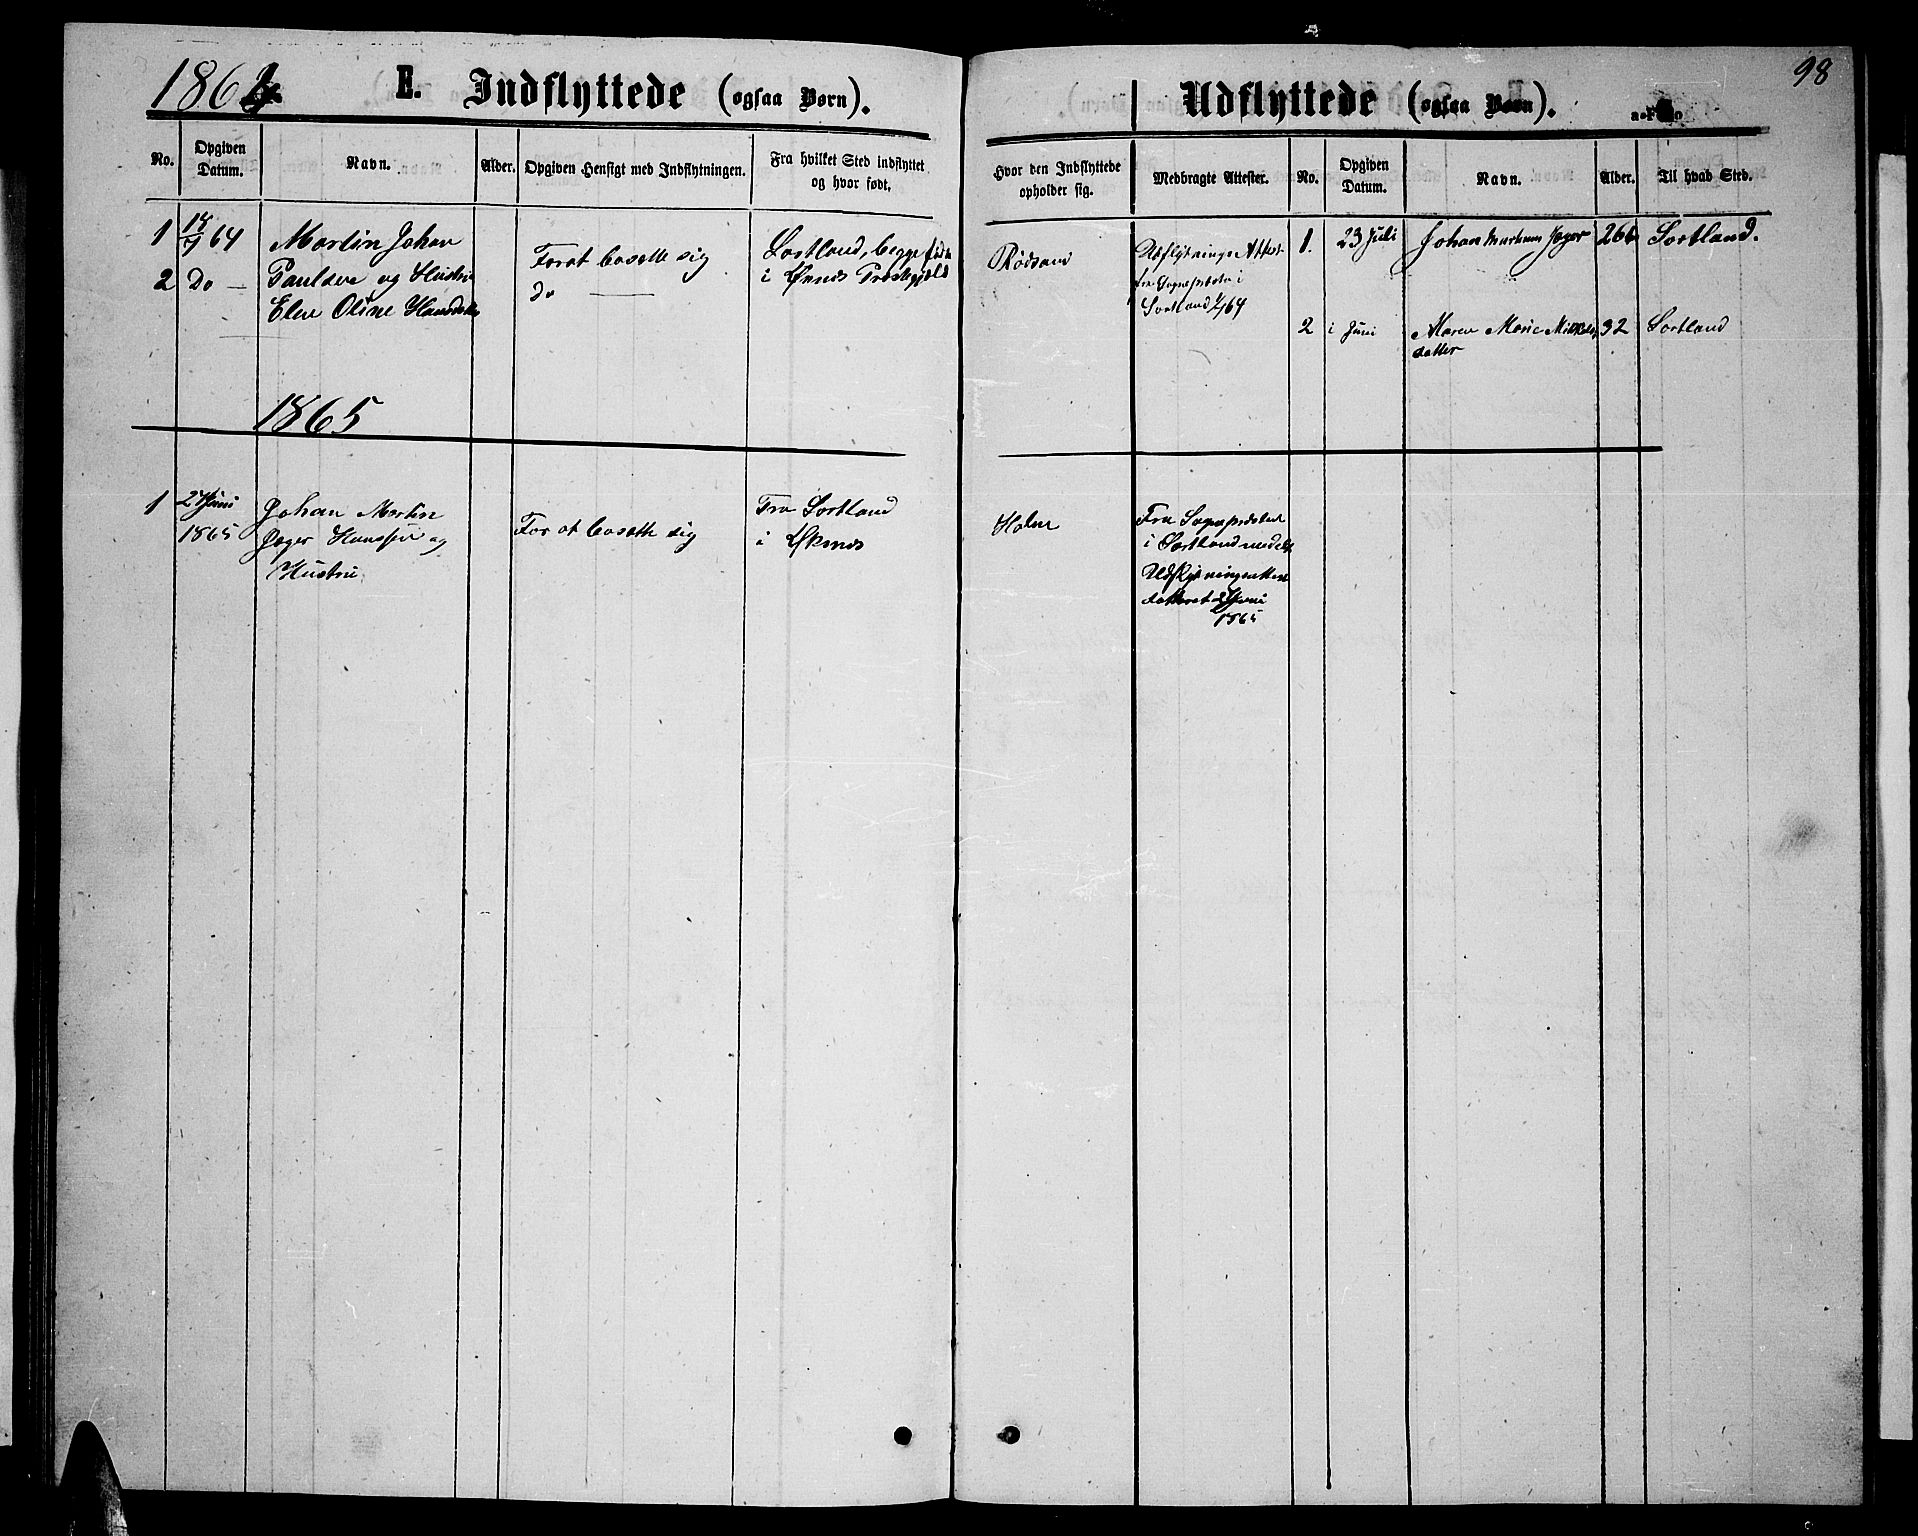 1864. E. Indflyttede (ogsaa Børn).
No. Opgiven Datum. Navn. Alder. Opgiven Hensigt med Indflytningen. Fra hvilket Sted indflyttet og hvor født. Hvor den Indflyttede opholder sig. Medbragte Attester.
1 Martin Johan Forat bosætte sig Sortland, begge født Rødsand Udflytnings Attest
2 Do — Paulsen og Hustru Do — i Øxnes Præstegjeld fra Sognepræsten i
Elen Oline Hansdatter Sortland
1865
1 Juni Johan Martin For at bosætte sig Fra Sortland Holm Fra Sognepræsten
1865 Jæger Hanssen og i Øksnes i Sortland
Hustru Udflytningsattest
datteret Juni
1865
98
Udflyttede (ogsaa Børn).
No. Opgiven Datum. Navn. Alder. Til hvad Sted.
1. 23 Juli Johan Martinus Jæger Sortland.
2 i Juni Maren Marie Mikkels 32 Sortland
datter